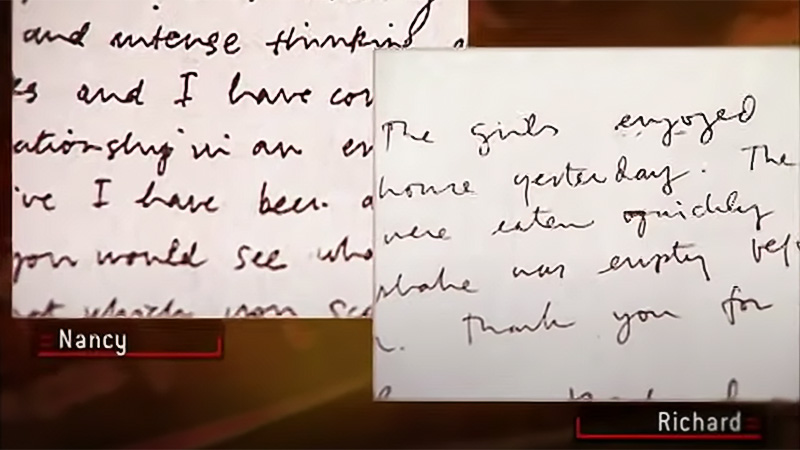 and intense thinking
and I have
ationship in an en
've I have been a
you would see who
which you
Nancy
The girls enjoyed
house yesterday. The
were eaten quickly
shake was empty bef
Thank you for
Richard